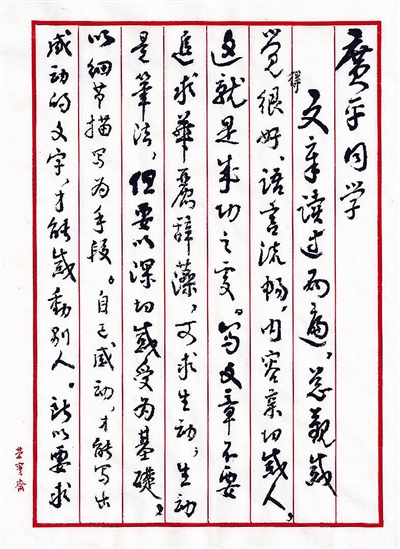 廣平同学
文章读过两遍，总觀感
觉得很好、语言流畅，内容切感人，
这就是成功之处。写文章不要
追求華麗辞藻，可求生动，生动
是筆法，但要以深切感受为基礎，
以细节描写为手段。自己感动，才能写出
感动的文字，才能感動别人。所以要求
荣宝斋